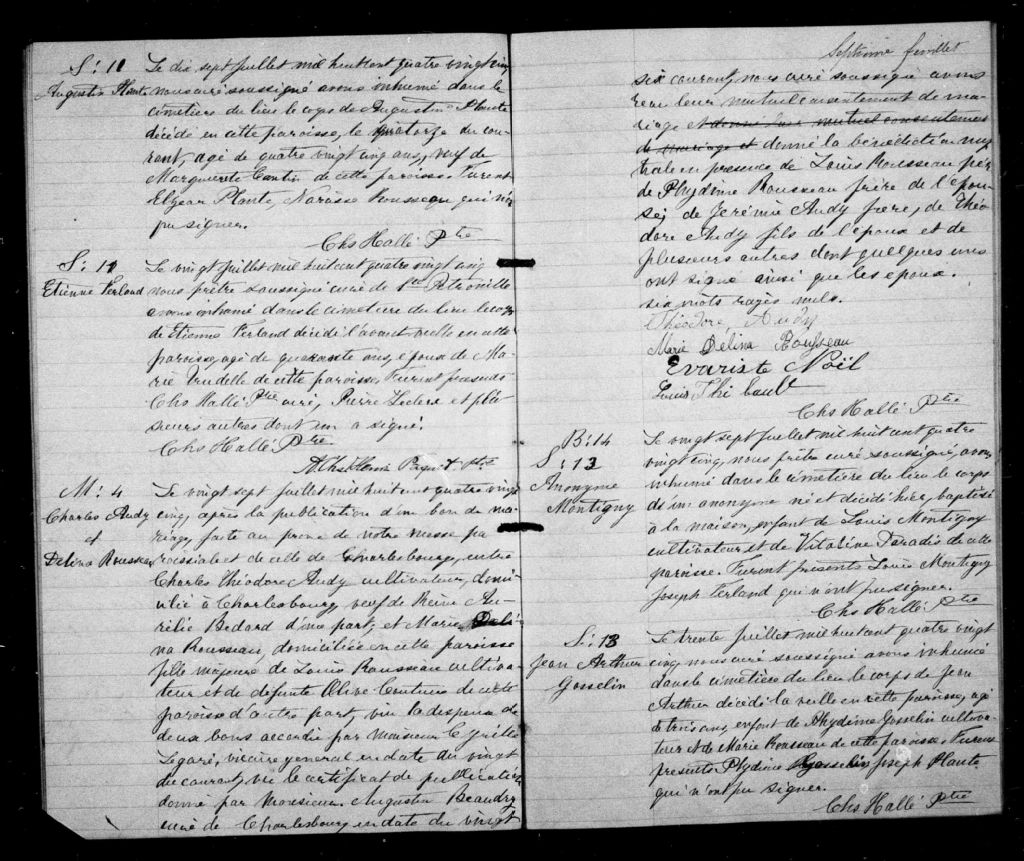 S: 11
Augustin Plante
Le dix sept juillet mil huit cent quatre vingt cinq
nous curé soussigné avons inhumé dans le
cimetière du lieu le corps de Augustin Plante
décédé en cette paroisse, le quatorze du cou-
rant, agé de quatre vingt cinq ans, veuf de
Marguerite Cantin de cette paroisse. Furent
Elzear Plante, Narcisse Rousseau qui n'on
pu signer.
Chs Hallé Ptre
S: 12
Etienne Ferland
Le vingt juillet mil huit cent quatre vingt cinq
nous prêtre soussigné curé de Ste Pétronille
avons inhumé dans le cimetière du lieu le corps
de Etienne Ferland décédé l'avant veille en cette
paroisse, agé de quarante ans, epoux de Ma-
rie Trudelle de cette paroisse. Furent présents
Chs Hallé Ptre curé, Pierre Leclerc et plu-
sieurs autres dont un a signé.
Chs Hallé Ptre
Henri Paquet, Ptre
M: 4
Charles Audy
et
Delina Rousseau
Le vingt sept juillet mil huit cent quatre vingt
cinq, après la publication d'un ban de ma-
riage, faite au prone de notre messe pa-
roissiale et de celle de Charlesbourg, entre
Charles Théodore Audy, cultivateur, domi-
cilié à Charlesbourg, veuf de Reine Au-
rélie Bedard d'une part; et Marie Deli-
na Rousseau, domiciliée en cette paroisse
fille majeure de Louis Rousseau cultiva-
teur et de défunte Olive Couture de cette
paroisse d'autre part, vu la dispense de
deux bans accordée par Monsieur Cyrille
Legaré, vicaire general en date du vingt
du courant, vu le certificat de publication
donné par Monsieur Augustin Beaudry
curé de Charlesbourg en date du vingt
Septième feuillet
six courant, nous curé soussigné avons
recu leur mutuel consentement de ma-
riage et donné leur mutuel consentement
de mariage et donné la bénédiction nup
tiale en presence de Louis Rousseau père
de Phydime Rousseau frère de l'épou-
se, de Jérémie Audy frere, de Théo
dore Audy fils de l'epoux et de
plusieurs autres dont quelques uns
ont signé ainsi que les epoux.
six mots rayés nuls.
Théodore Audy
Marie Delina Rousseau
Evariste Noël
Louis Thibault
Chs Hallé Ptre
B: 14
S: 13
Anonyme
Montigny
Le vingt sept juillet mil huit cent quatre
vingt cinq, nous prêtre curé soussigné, avons
inhumé dans le cimétière du lieu le corps
d'un anonyme né et décédé hier, baptisé
à la maison, enfant de Louis Montigny
cultivateur et de Vitaline Paradis de cette
paroisse. Furent presents Louis Montigny
Joseph Ferland qui n'ont pu signer.
Chs Hallé Ptre
S: 13
Jean Arthur
Gosselin
Le trente juillet mil huit cent quatre vingt
cinq, nous curé soussigné avons inhumé
dans le cimétière du lieu le corps de Jean
Arthur décédé la veille en cette paroisse, agé
de trois ans, enfant de Phydime Gosselin cultiva-
teur et de Marie Rousseau de cette paroisse. Furent
presents Phydime Gosselin Joseph Plante
qui n'ont pu signer.
Chs Hallé Ptre